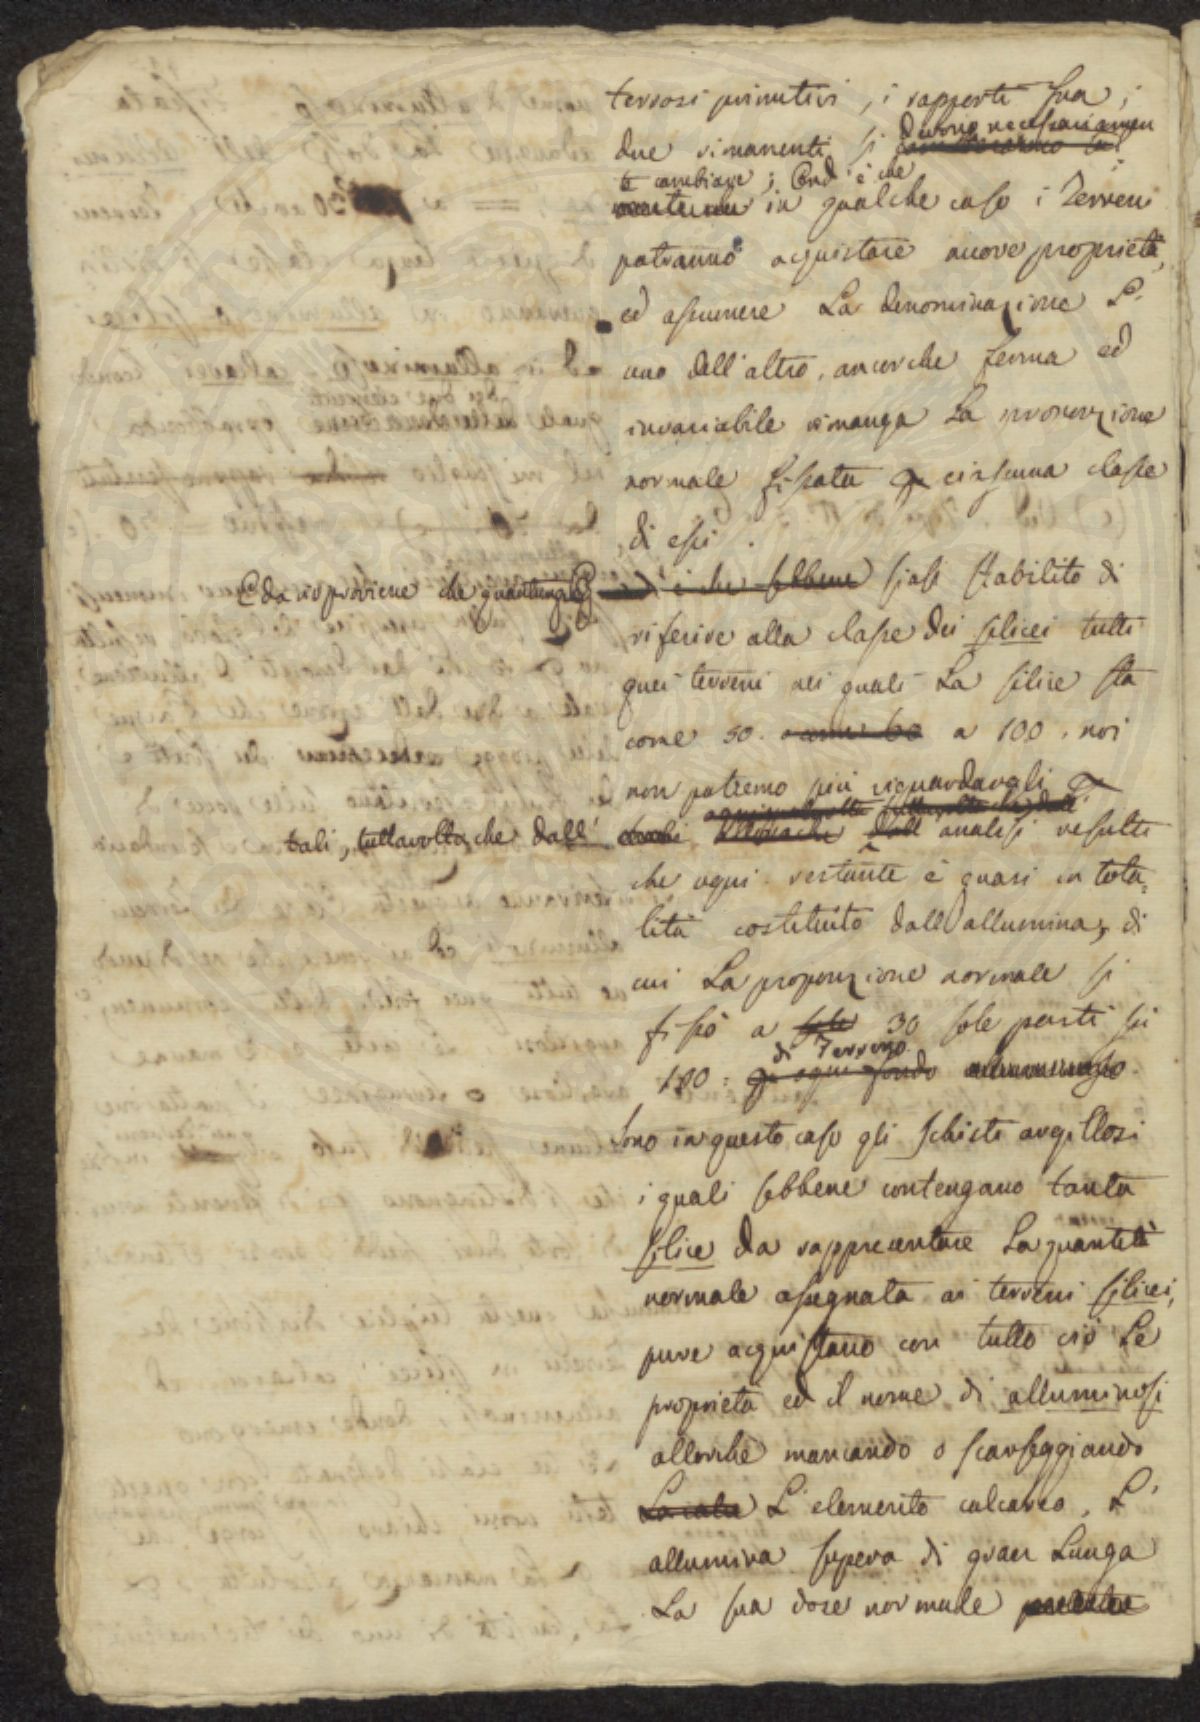 terrosi primitivi, i rapporti fra i
due rimanenti si devono necessariamen
te cambiare; Ond' è che
in qualche caso i Terreni
potranno acquistare nuove proprietà,
ed assumere La denominazione L'
uno dell'altro, ancorche ferma ed
invariabile rimanga La proporzione
normale fissata p ciascuna classe
di essi.
E da ciò proviene che quantunque
i che sebbene siasi stabilito di
riferire alla classe dei silicei tutti
quei terreni nei quali La silice sta
come 50. a 100, noi
non potremo più riguardargli p
tali, tuttavolta che dall'
dall' analisi resulti
che ogni restante è quasi in tota=
lità costituito dall'allumina, di
cui La proporzione normale si
fissò a sole 30 sole parti su
100: di Terreno
p ogni fondo alluminoso.
Sono in questo caso gli schisti argillosi
i quali sebbene contengano tanta
silice da rappresentare La quantità
normale assegnata ai terreni silicei,
pure acquistano con tutto ciò Le
proprietà ed il nome di alluminosi
allorchè mancando o scarseggiando
La calce L'elemento calcareo, L'
allumina supera di gran Lunga
La sua dose normale